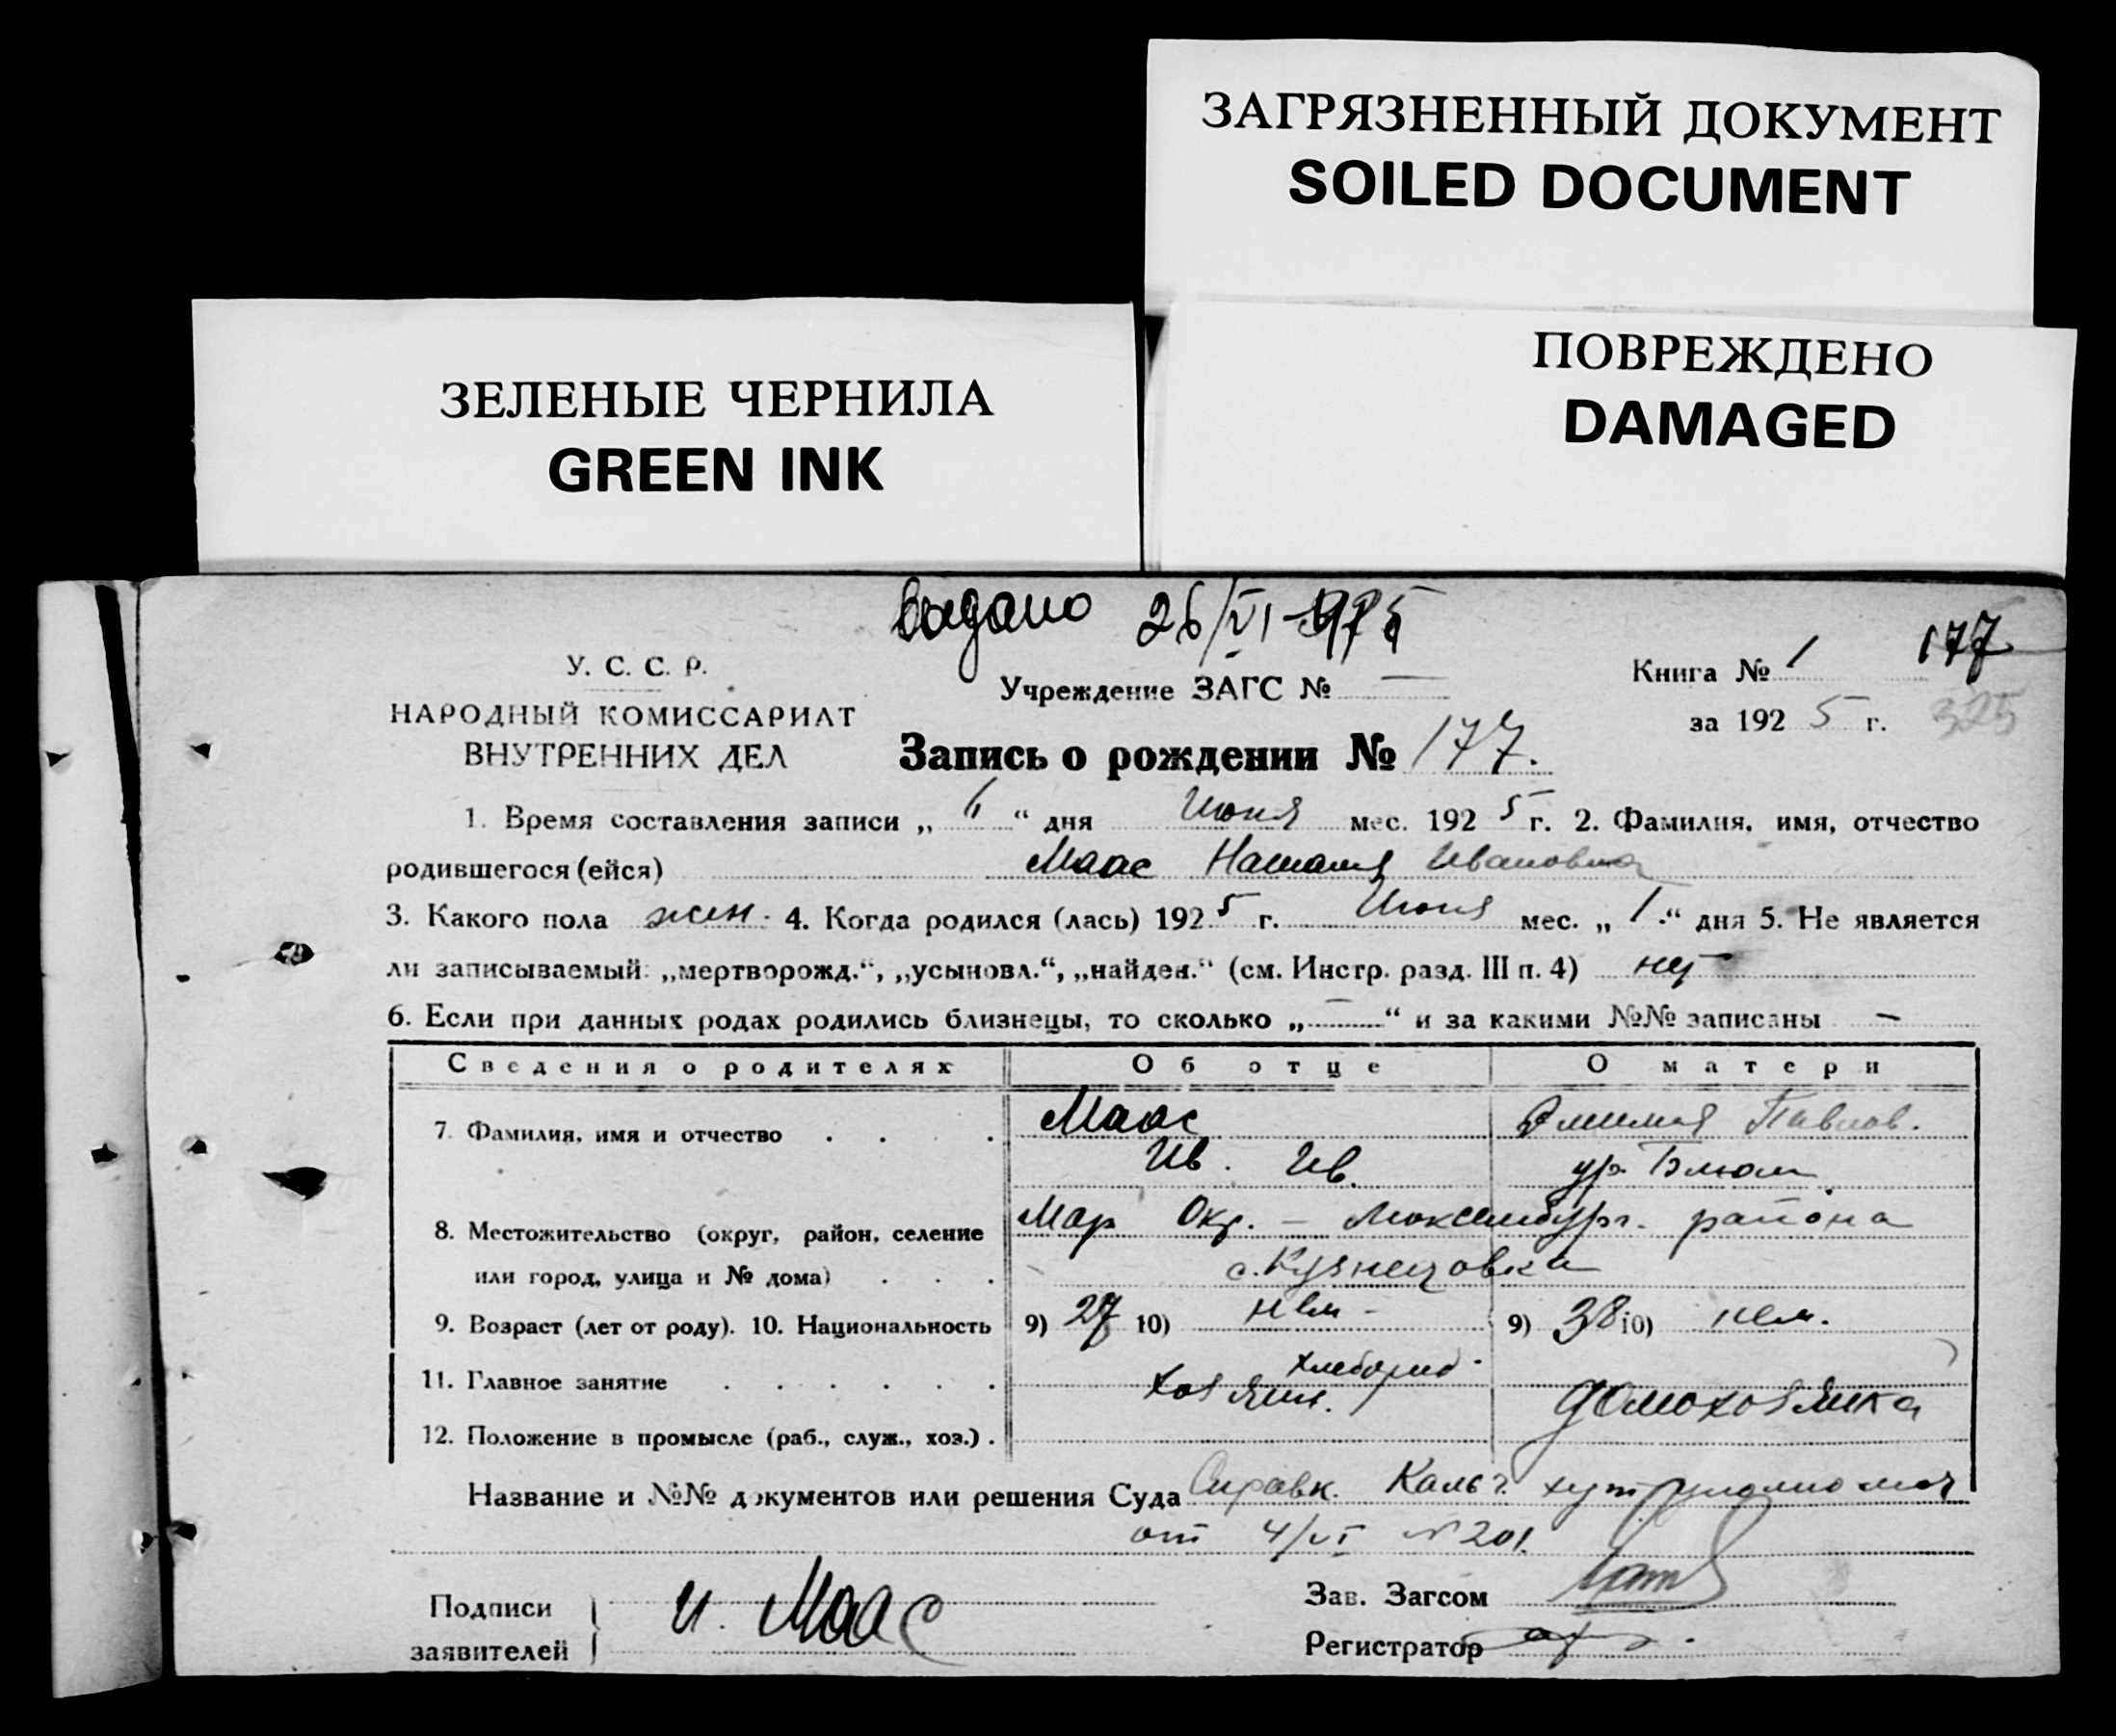 ЗАГРЯЗНЕННЫЙ ДОКУМЕНТ
SOILED DOCUMENT
ПОВРЕЖДЕНО
DAMAGED
ЗЕЛЕНЫЕ ЧЕРНИЛА
GREEN INK
Выдано 26/VI
У. С. С. Р.
НАРОДНЫЙ КОМИССАРИАТ
ВНУТРЕННИХ ДЕЛ
Учреждение ЗАГС № —
Книга № 1 177
за 1925 г. 325
Запись о рождении № 177.
1. Время составления записи „ 6 “ дня Июня мес. 1925 г. 2. Фамилия, имя, отчество
родившегося (ейся) Маас Наталия Ивановна
3. Какого пола жен. 4. Когда родился (лась) 1925 г. Июня мес. „ 1. “ дня 5. Не является
ли записываемый: „мертворожд.“, „усыновл.“, „найден.“ (см. Инстр. разд. III п. 4) нет
6. Если при данных родах родились близнецы, то сколько „ — “ и за какими №№ записаны —
Сведения о родителях Об отце О матери
7. Фамилия, имя и отчество Маас Павлов.
Ив. Ив. ур.
8. Местожительство (округ, район, селение Мар Окр. — Люксембург. района
или город, улица и № дома) с. Кузнецовка
9. Возраст (лет от роду). 10. Национальность 9) 27 10) нем - 9) 38 10) нем.
11. Главное занятие хлебороб. хозяин. домохозяйка
12. Положение в промысле (раб., служ., хоз.)
Название и №№ документов или решения Суда Справк. Кальч.
от 4/VI № 201.
Подписи заявителей И. Маас
Зав. Загсом
Регистратор